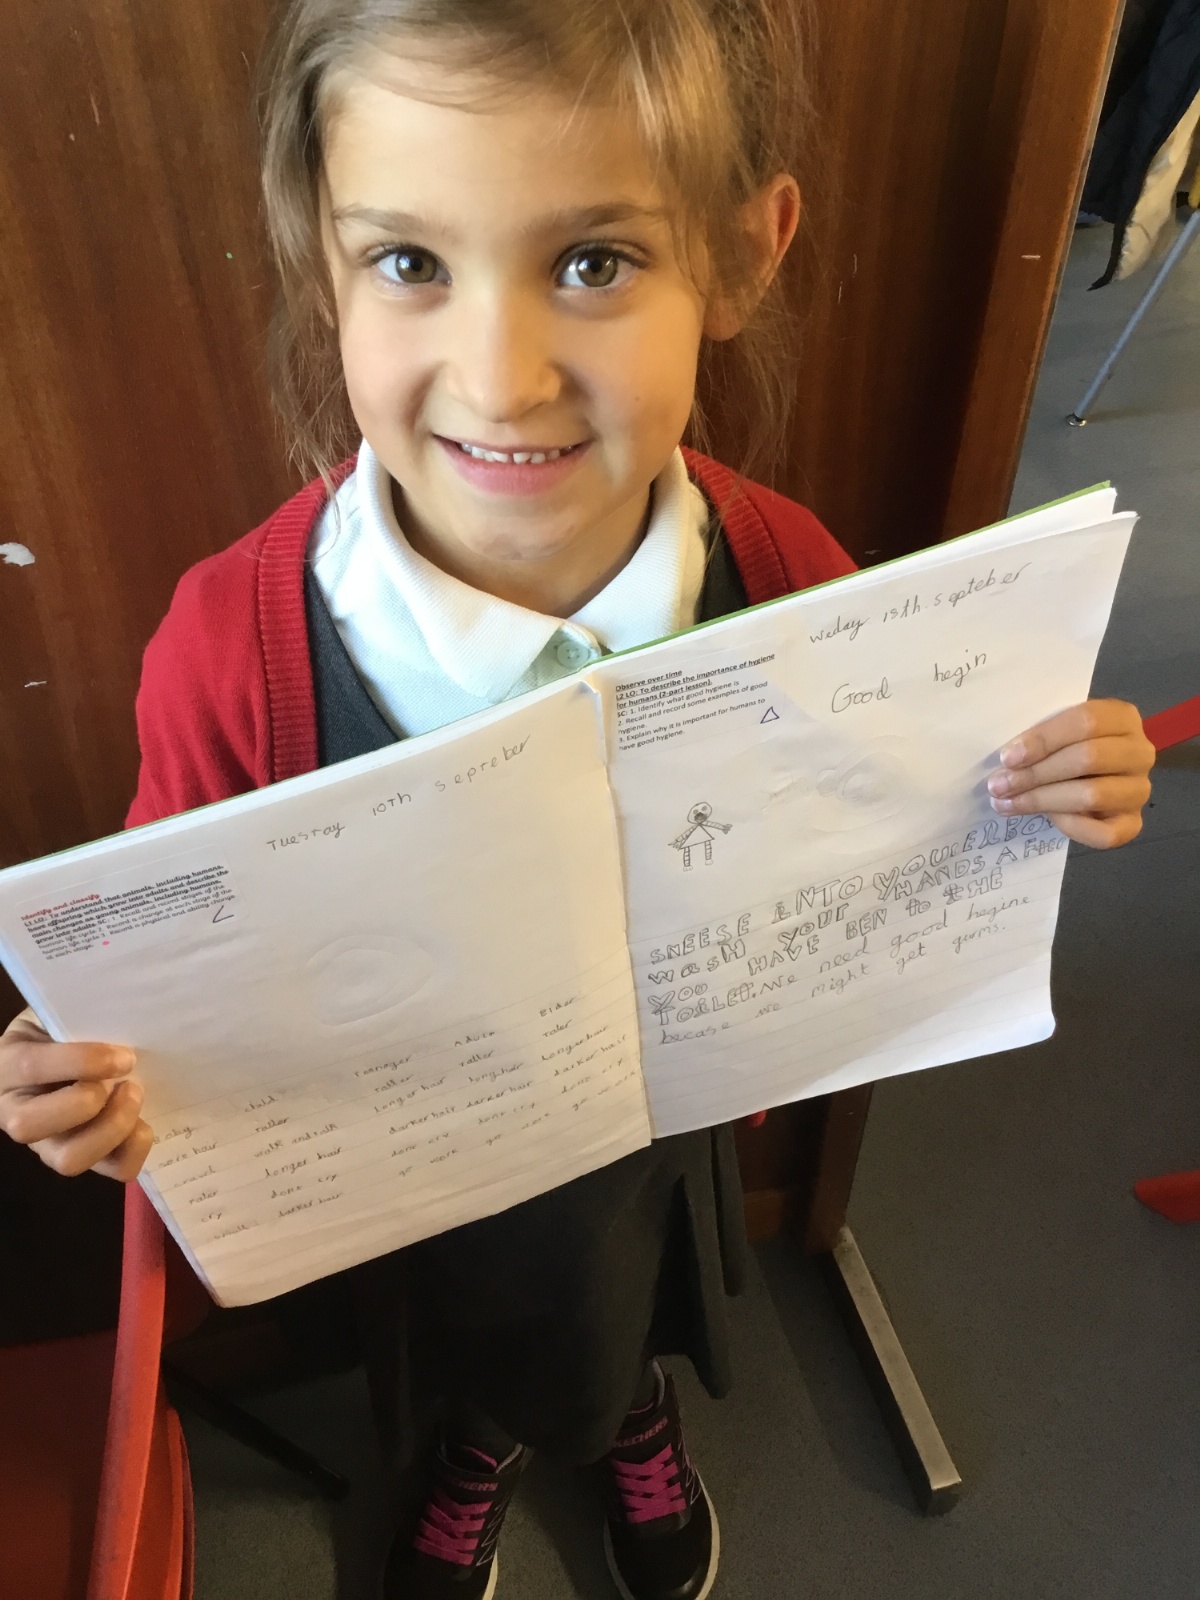 Tuesday 10th Septeber
Identify and classify
L1 LO: To understand that animals, including humans,
have offspring which grow into adults and describe the
main changes as young animals, including humans,
grow into adults SC: 1. Recall and record stages of the
human life cycle 2. Record a change at each stage of the
human life cycle 3. Record a physical and ability change
at each stage.
child teenager Elder
taller taller taller taller
more hair walk and talk longer hair long hair longer hair
crawl longer hair darker hair darker hair darker hair
dont cry dont cry dont cry dont cry
cry darker hair go work go work go work
Weday 18th Septeber
Good hegin
Observe over time
L2 LO: To describe the importance of hygiene
for humans (2-part lesson).
SC: 1. Identify what good hygiene is
2. Recall and record some examples of good
hygiene.
3. Explain why it is important for humans to
have good hygiene.
SNEESE INTO YOUR
WASH YOUR HANDS A
YOU HAVE BEN to tHE
TOILET. We need good hegine
becase we might get germs.
SKECHERS